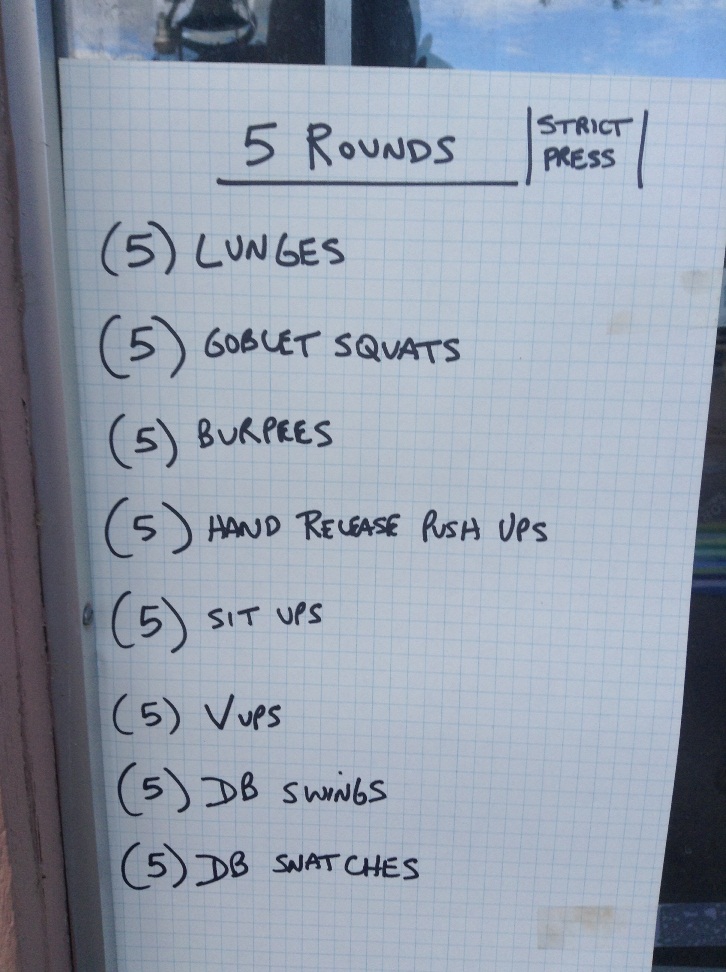 5 ROUNDS
STRICT
PRESS
(5) LUNGES
(5) GOBLET SQUATS
(5) BURPEES
(5) HAND RELEASE PUSH UPS
(5) SIT UPS
(5) V UPS
(5) DB SWINGS
(5) DB SNATCHES